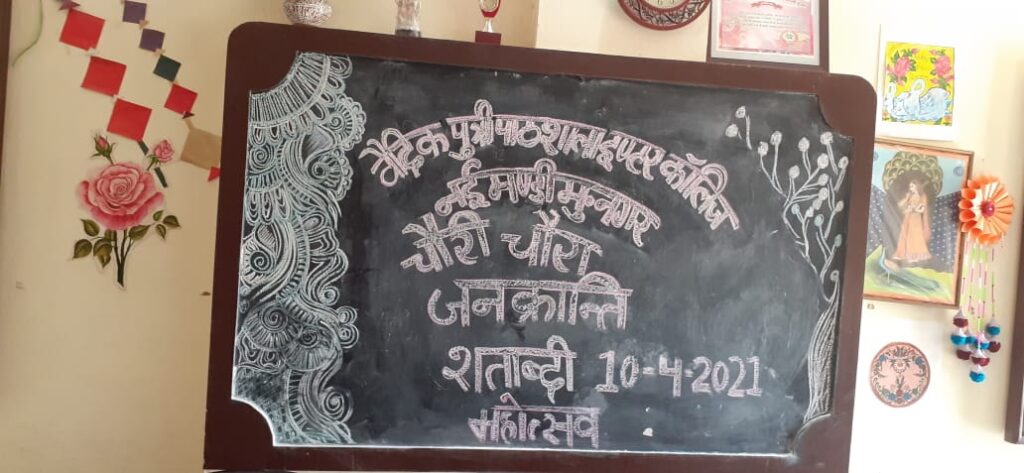 वैदिक पुत्री पाठशाला इण्टर कॉलिज
नई मण्डी मु०नगर
चौरी चौरा
जनक्रान्ति
शताब्दी 10-4-2021
महोत्सव